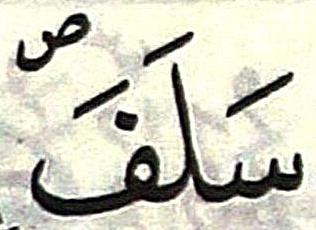 سَلَفَ ص